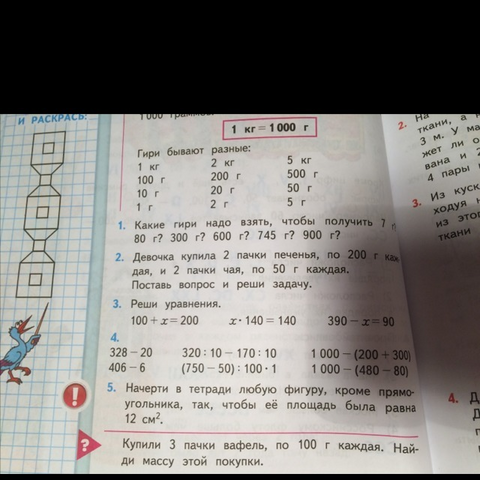 И РАСКРАСЬ:
1 кг = 1 000 г
Гири бывают разные:
1 кг 2 кг 5 кг
100 г 200 г 500 г
10 г 20 г 50 г
1 г 2 г 5 г
1. Какие гири надо взять, чтобы получить 7 г
80 г? 300 г? 600 г? 745 г? 900 г?
2. Девочка купила 2 пачки печенья, по 200 г каж
дая, и 2 пачки чая, по 50 г каждая.
Поставь вопрос и реши задачу.
3. Реши уравнения.
100 + x = 200 x · 140 = 140 390 − x = 90
4.
328 − 20 320 : 10 − 170 : 10 1 000 − (200 + 300)
406 − 6 (750 − 50) : 100 · 1 1 000 − (480 − 80)
5. Начерти в тетради любую фигуру, кроме прямо-
угольника, так, чтобы её площадь была равна
12 см².
Купили 3 пачки вафель, по 100 г каждая. Най-
ди массу этой покупки.
!
?
2. На
ткани, а н
3 м. У ма
жет ли о
вана и 2
4 пары
3. Из куск
ходуя н
из этог
ткани
4. Д